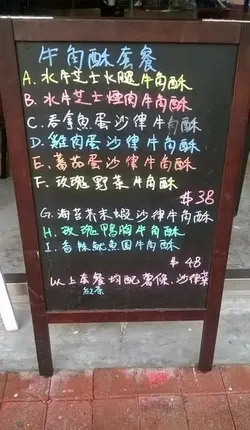 牛角酥套餐
A. 水牛芝士火腿牛角酥
B. 水牛芝士煙肉牛角酥
C. 吞拿魚蛋沙律牛角酥
D. 雞肉蛋沙律牛角酥
E. 蕃茄蛋沙律牛角酥
F. 玫瑰野菜牛角酥
$38
G. 海苔芥末蝦沙律牛角酥
H. 玫瑰鴨胸牛角酥
I. 香辣魷魚圈牛角酥
$48
以上套餐均配薯條、沙律菜
紅茶